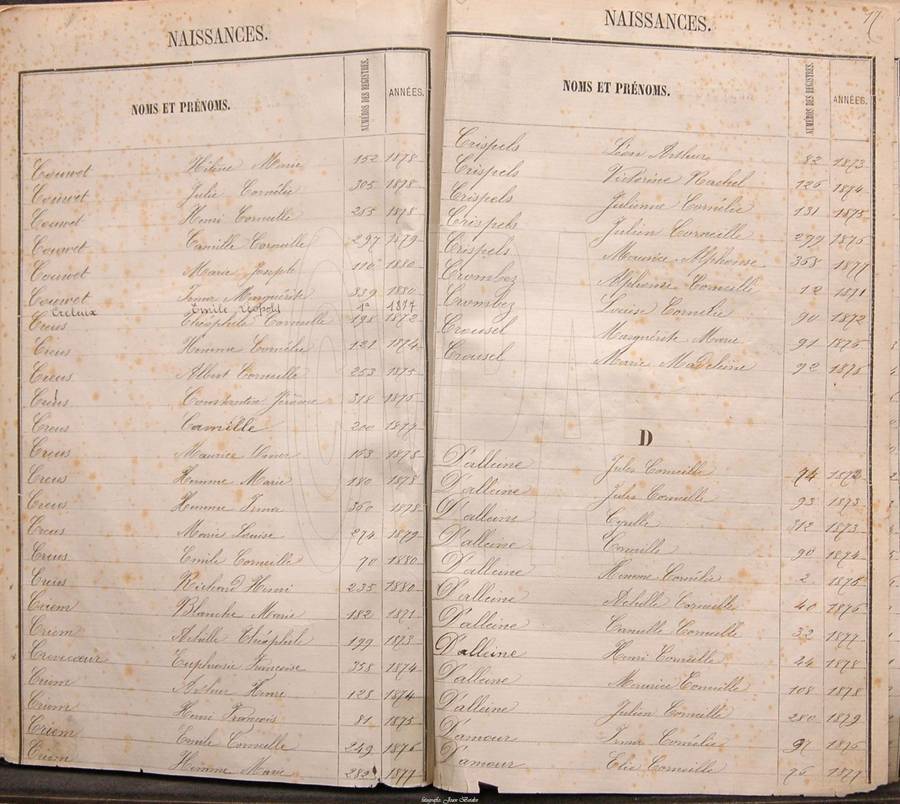 NAISSANCES.
NOMS ET PRÉNOMS. NUMÉROS DES REGISTRES. ANNÉES.
Couwet Hélène Marie 152 1878
Couwet Julie Cornélie 305 1878
Couwet Henri Corneille 255 1878
Couwet Camille Corneille 297 1879
Couwet Marie Joseph 110 1880
Couwet Irma Marguérite 339 1880
Creteux Emile Léopold 1877
Creus Théophile Corneille 198 1872
Creus Hemme Cornélie 121 1874
Creus Albert Corneille 253 1875
Creus Constantin Jérôme 318 1875
Creus Camille 200 1877
Creus Maurice Omer 163 1878
Creus Hemme Marie 180 1878
Creus Hemme Irma 360 1878
Creus Marie Louise 274 1879
Creus Emile Corneille 70 1880
Creus Richard Henri 235 1880
Criem Blanche Marie 182 1871
Criem Achille Théophile 199 1873
Crevecœur Euphrasie Françoise 358 1874
Criem Arthur 128 1874
Criem Henri François 81 1875
Criem Emile Corneille 249 1876
Criem Hemme Marie 282 1877
NAISSANCES.
17
NOMS ET PRÉNOMS. NUMÉROS DES REGISTRES. ANNÉES.
Crispels Léon Arthur 82 1873
Crispels Victorine Rachel 126 1874
Crispels Julienne Cornélie 131 1875
Crispels Julien Corneille 279 1876
Crispels Maurice Alphonse 358 1877
Crombez Alphonse Corneille 12 1871
Crombez Louise Cornélie 90 1872
Crousel Marguérite Marie 91 1876
Crousel Marie Madeleine 92 1876
D
D'alleine Jules Corneille 74 1872
D'alleine Jules Corneille 93 1873
D'alleine Cyrille 312 1873
D'alleine Camille 90 1874
D'alleine Hemme Cornélie 2 1876
D'alleine Achille Corneille 40 1876
D'alleine Camille Corneille 32 1877
D'alleine Henri Corneille 24 1878
D'alleine Maurice Corneille 108 1878
D'alleine Julien Corneille 280 1879
D'amour Irma Cornélie 97 1876
D'amour Elie Corneille 76 1877